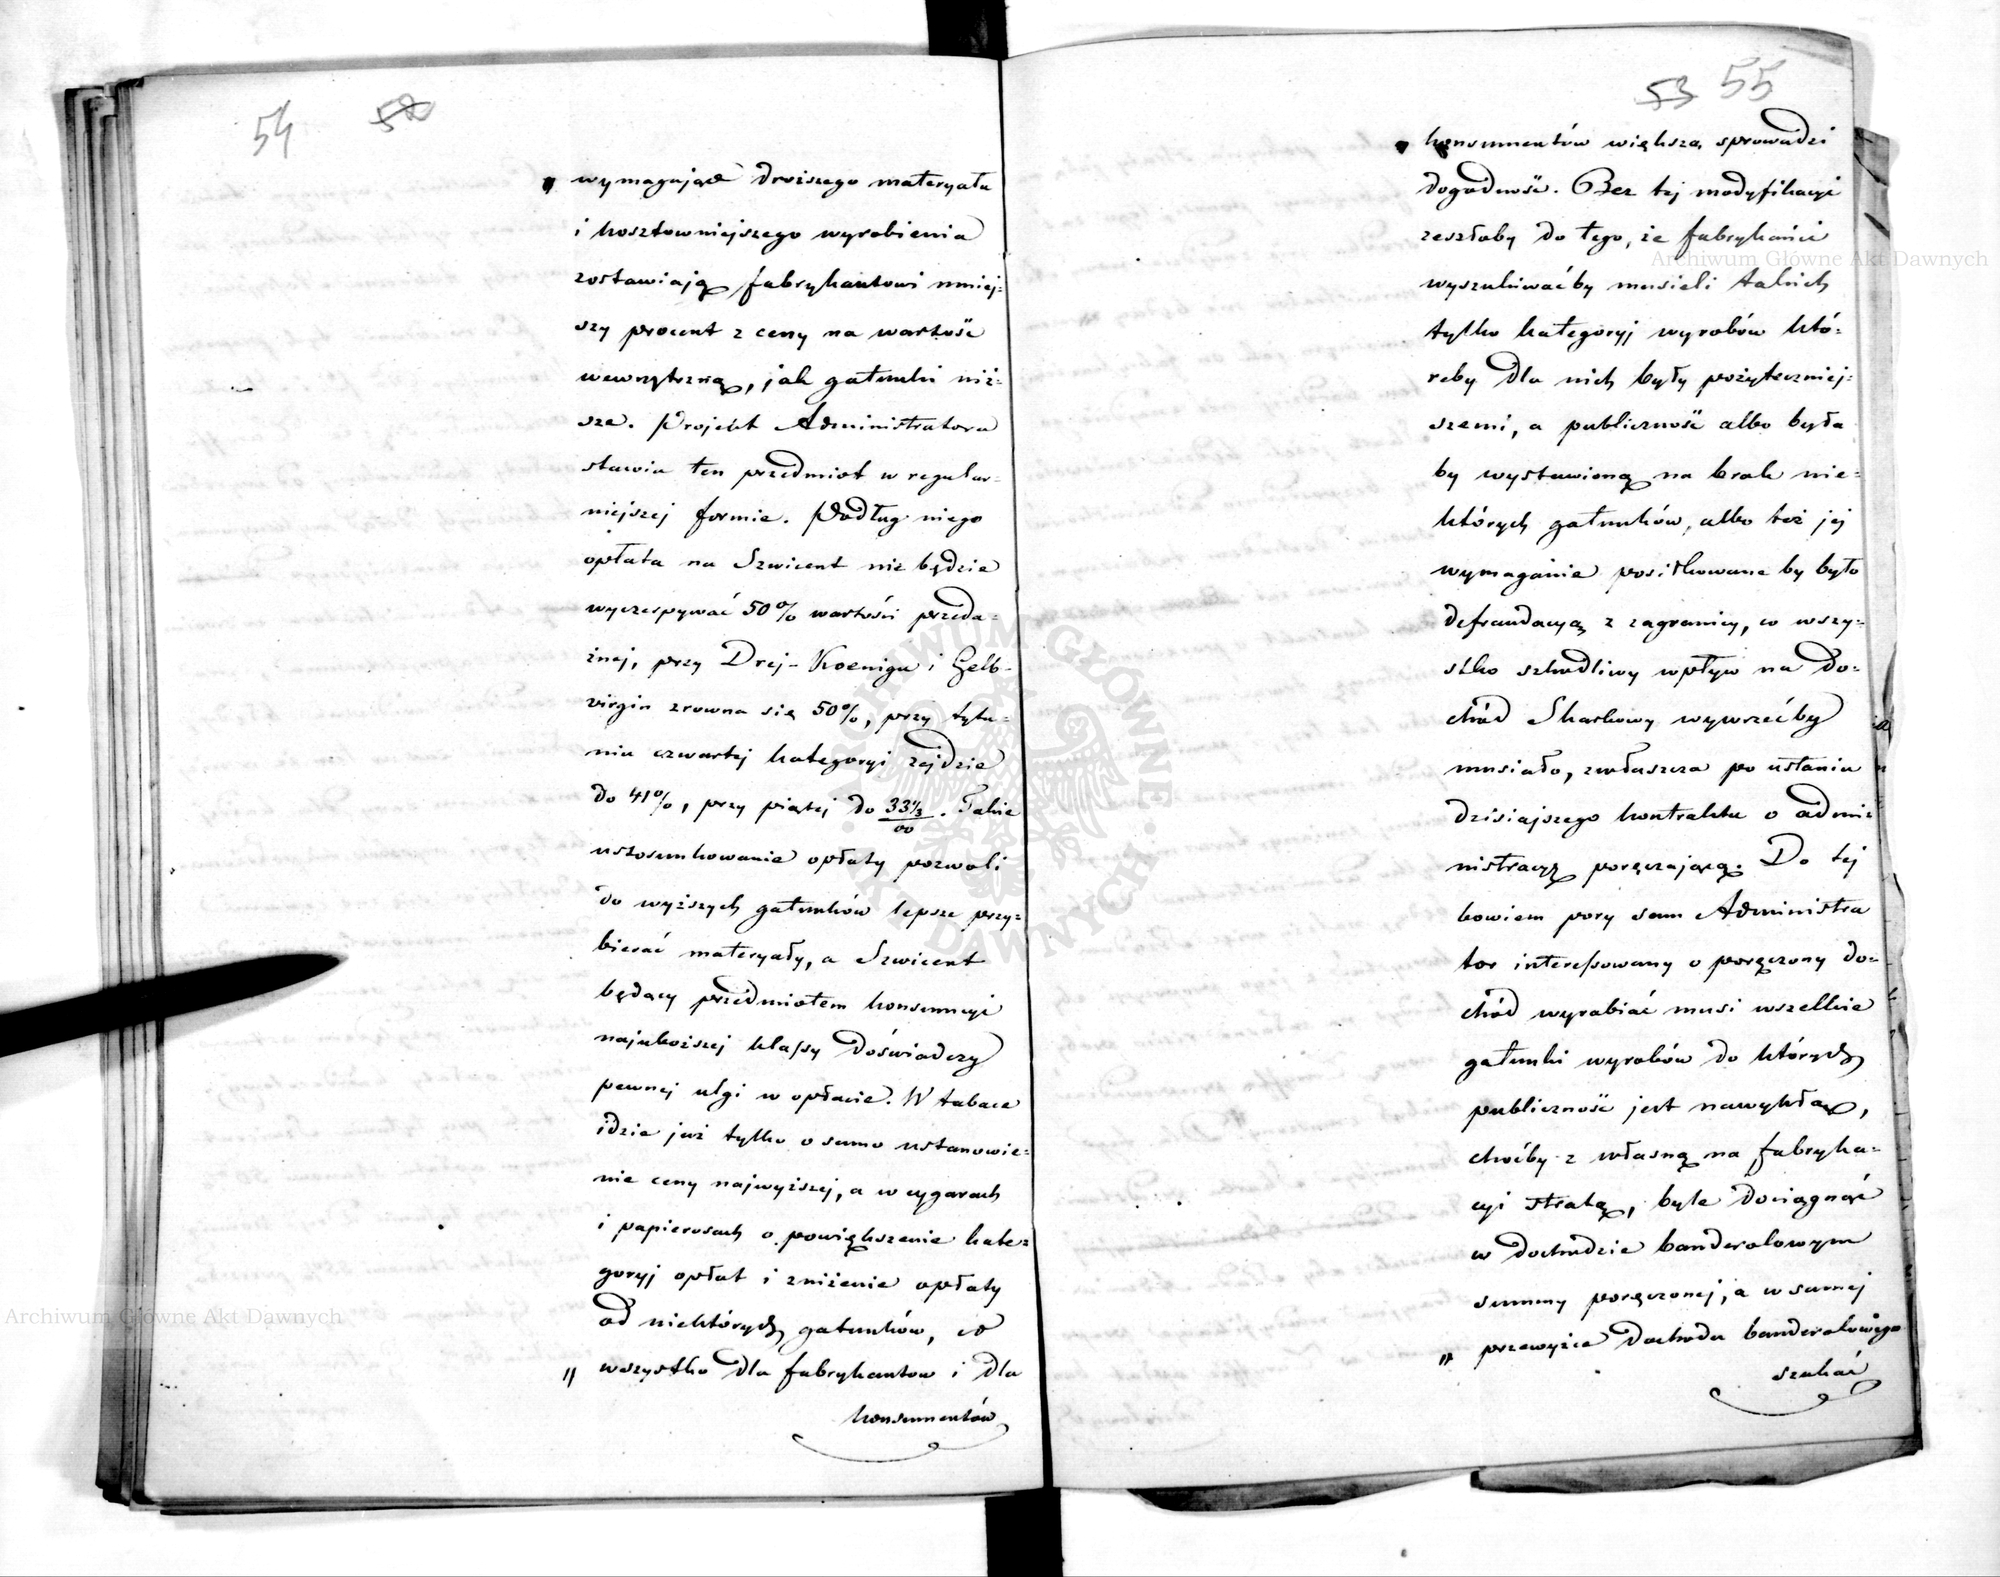 54 52
wymagające droższego materyału
i kosztowniejszego wyrobienia
zostawiają fabrykantowi mniej-
szy procent z ceny na wartość
wewnętrzną, jak gatunki niż-
sze. Projekt Administratora
stawia ten przedmiot w regular-
niejszej formie. Podług niego
opłata na Szwicent nie będzie
wyczerpywać 50% wartości przeda-
żnej, przy Drej-Koenigu i Gelb-
virgin zrowna się 50%, przy tytu-
niu czwartej kategoryi zejdzie
do 41%, przy piątej do 33⅓/00. Takie
ustosunkowanie opłaty pozwoli
do wyższych gatunków lepsze przy-
bierać materyały, a Szwicent
będący przedmiotem konsumcyi
najuboższej klassy doświadczy
pewnej ulgi w opłacie. W tabace
idzie już tylko o samo ustanowie-
nie ceny najwyższej, a w cygarach
i papierosach o powiększenie kate-
goryj opłat i zniżenie opłaty
od niektórych gatunków, co
" wszystko dla fabrykantow i dla
konsumentów
53 55
konsumentów większą sprowadzi
dogodność. Bez tej modyfikacyi
zeszłoby do tego, że fabrykańci
wyszukiwaćby musieli takich
tylko kategoryj wyrobów któ-
reby dla nich były pożyteczniej-
szemi, a publiczność albo była
by wystawioną na brak nie-
których gatunków, albo też jej
wymaganie posiłkowane by było
defraudacyą z zagranicy, co wszy-
stko szkodliwy wpływ na do-
chód Skarbowy wywrzećby
musiało, zwłaszcza po ustaniu
dzisiajszego kontraktu o admi-
nistracyę poręczającą. Do tej
bowiem pory sam Administra
tor interessowany o poręczony do-
chód wyrabiać musi wszelkie
gatunki wyrobów do których
publiczność jest nawykłą,
choćby z własną na fabryka-
cyi stratą, byle dociągnąć
w dochodzie banderolowym
summy poręczonej, a w samej
" przewyżce dochodu banderolowego
szukać
Archiwum Główne Akt Dawnych
Archiwum Główne Akt Dawnych
ARCHIWUM GŁÓWNE AKT DAWNYCH